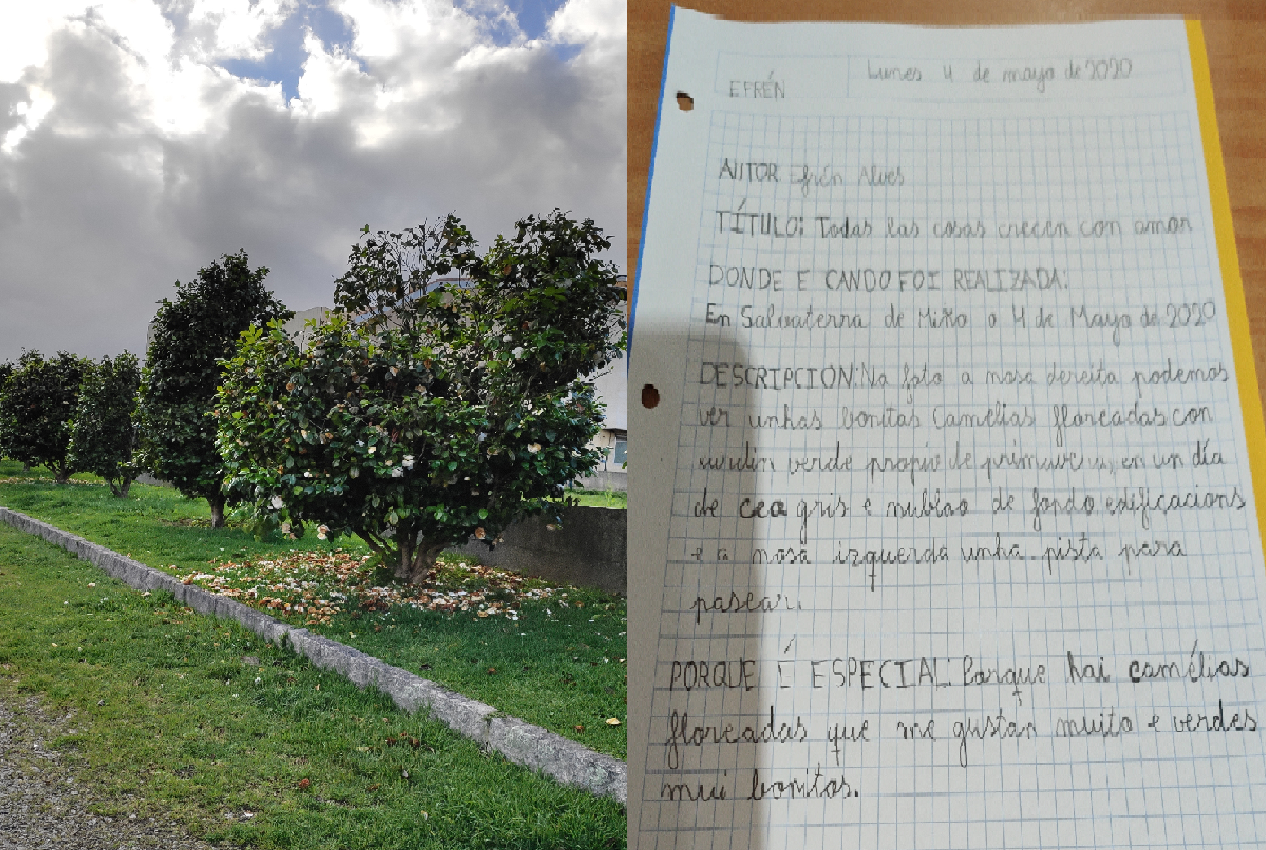 EFRÉN
Lunes 4 de mayo de 2020
AUTOR Efrén Alves
TÍTULO: Todas las cosas crecen con amor
DONDE E CANDO FOI REALIZADA:
En Salvaterra de Miño o 4 de Mayo de 2020
DESCRIPCION: Na foto a nosa dereita podemos
ver unhas bonitas Camelias floreadas con
verde propio de primavera, en un día
de ceo gris e nublao de fondo edificacions
e a nosa izquerda unha pista para
pasear.
PORQUE É ESPECIAL: Porque hai camélias
floreadas que me gustan muito e verdes
mui bonitas.